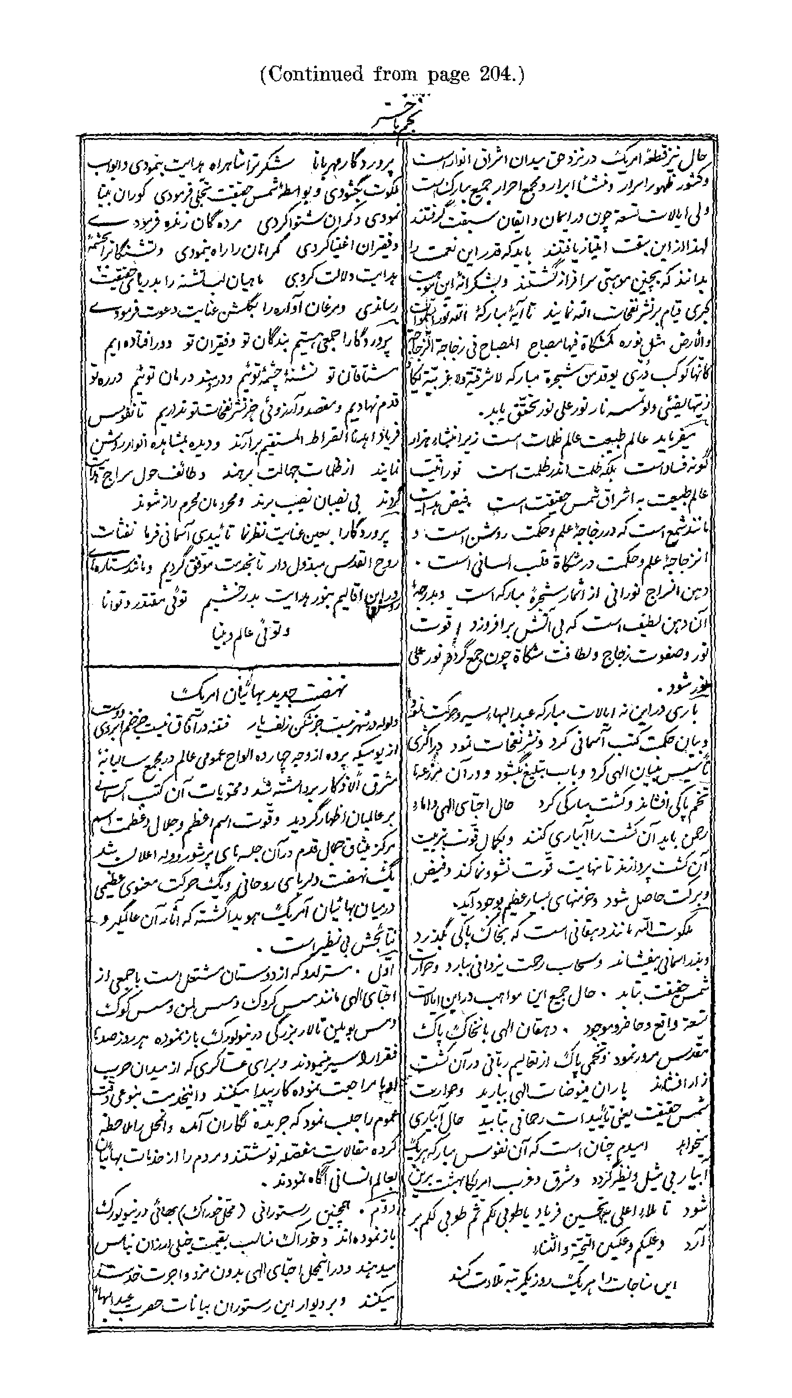 (Continued from page 204.)
نجم باختر
حال نیز قطعهٔ امریک در نزد حق میدان اشراق انوار است
و کشور ظهور اسرار و منشأ ابرار و مجمع احرار جمیع مبارک است
ولی ایالات تسعة چون در ایمان و ایقان سبقت گرفتند
لهذا از این سبقت امتیاز یافتند باید که قدر این نعمت را
بدانند که بچنین موهبتی سرافراز گشتند و بشکرانهٔ این موهبت
کبری قیام بر نشر نفحات الله نمایند تا آیهٔ مبارکهٔ الله نور السموات
والأرض مثل نوره کمشکاة فیها مصباح المصباح فی زجاجة الزجاجة
کأنها کوکب دری یوقد من شجرة مبارکه لا شرقیة ولا غربیة یکاد
زیتها یضیء ولو لم تمسسه نار نور علی نور تحقق یابد.
میفرماید عالم طبیعت عالم ظلمات است زیرا منشاء هزار
گونه فساد است بلکه ظلمت اندر ظلمت است نورانیت
عالم طبیعت به اشراق شمس حقیقت است فیض هدایت
مانند شمع است که در زجاجهٔ علم و حکمت روشن است و
آن زجاجهٔ علم و حکمت در مشکاة قلب انسانی است .
دهن آن سراج نورانی از اثمار شجرهٔ مبارکه است و بدرجهٔ
آن دهن لطیف است که بی آتش برافروزد قوت
نور و صفوت زجاج و لطافت مشکاة چون جمع گردد نور علی
نور شود .
باری در این نه ایالات مبارکه عبدالبهاء سیر و حرکت نمود
و بیان حکمت کتب آسمانی کرد و نشر نفحات نمود در اکثری
تأسیس بنیان الهی کرد و باب تبلیغ بگشود و در آن مزرعه‌ها
تخم پاکی افشاند و کشت مبارکی کرد حال احبای الهی و اماء
رحمن باید آن کشت را آبیاری کنند و بکمال قوت بتربیت
آن کشت پردازند تا نهایت قوت نشو و نما کند و فیض
و برکت حاصل شود و خرمنهای بسیار عظیم بوجود آید.
ملکوت الله مانند دهقانی است که بخاک پاکی بگذرد
و بذر آسمانی بیفشاند و سحاب رحمت یزدانی ببارد و حرارت
شمس حقیقت بتابد . حال جمیع این مواهب در این ایالات
تسعة واقع و حاضر و موجود . دهقان الهی بآن خاک پاک
مقدس مرور نمود و تخمی پاک از تعالیم ربانی در آن کشت
زار افشاند باران فیوضات الهی ببارید و حرارت
شمس حقیقت یعنی تأییدات رحمانی بتابید حال آبیاری
میخواهد امیدم چنان است که آن نفوس مبارکه هر یک
آبیار بی مثل و نظیر گردد و شرق و غرب امریکا بهشت برین
شود تا ملاء اعلی به تحسین فریاد یا طوبی لکم ثم طوبی لکم بر
آرد وعلیکم وعلیکن التحیة والثناء
این مناجات را هر یک روز یکمرتبه تلاوت کنند
پروردگار مهربانا شکر ترا شاهراه هدایت بنمودی و ابواب
ملکوت بگشودی و بواسطهٔ شمس حقیقت تجلی فرمودی کوران بینا
نمودی و کران شنوا کردی مرده گان زنده فرمودی
و فقیران اغنیا کردی گمراهان را راه بنمودی و تشنگانرا بچشمهٔ
هدایت دلالت کردی ماهیان لب تشنه را بدریای حقیقت
رساندی و مرغان آواره را بگلشن عنایت دعوت فرمودی
پروردگارا جمعی هستیم بندگان تو و فقیران تو دور افتاده ایم
مشتاقان تو تشنهٔ چشمهٔ توئیم دردمند درمان توئیم در ره تو
قدم نهادیم و مقصد و آرزوئی جز نشر نفحات تو نداریم تا نفوس
فریاد اهدنا الصراط المستقیم برآرند و دیده بمشاهده انوار روشن
نمایند از ظلمات جهالت برهند و طائف حول سراج هدایت
گردند بی نصیبان نصیب برند و محرومان محرم راز شوند
پروردگارا بعین عنایت نظر نما تأییدی آسمانی فرما نفثات
روح القدس مبذول دار تا بخدمت موفق گردیم و مانند ستاره‌های
روشن در این اقالیم بنور هدایت بدرخشیم توئی مقتدر و توانا
و توئی عالم و بینا
نهضت جدید بهائیان امریک
ولوله در شهر نیست جز شکن زلف یار فتنه در آفاق نیست جز خم ابروی دوست
از یومیکه پرده از وجه چهارده الواح عمومی عالم در مجمع سالیانهٔ
مشرق الأذکار برداشته شد و محتویات آن کتب آسمانی
بر عالمیان اظهار گردید و قوت اسم اعظم و جلال و عظمت اسم
مرکز میثاق جمال قدم در آن جلسه‌های پر شور و وله اعلان شد
یک نهضت دلربای روحانی و یک حرکت معنوی عظیمی
در میان بهائیان آمریک هویدا گشته که آثار آن عالمگیر و
نتائجش بی نظیر است .
اول . که از دوستان مشتعل است با جمعی از
احبای الهی مانند مس کروک و مس و مس کوک
و مس تالار بزرگی در نیویورک باز نموده هر روز صدها
فقرا را سیر مینمودند و برای عساکری که از میدان حرب
اروپا مراجعت نموده کار پیدا میکنند و این خدمت بنوعی دقت
عموم را جلب نمود که جریده نگاران آمده و آن محل را ملاحظه
کرده مقالات مفصله نوشتند و مردم را از خدمات بهائیان
بعالم انسانی آگاه نمودند .
دوم . همچنین رستورانی (محل خوراک) بهائی در نیویورک
باز نموده اند و خوراک مناسب بقیمت خیلی ارزان بناس
میدهند و در آن محل احبای الهی بدون مزد و اجرت خدمت
میکنند و بر دیوار این رستوران بیانات حضرت عبدالبهاء